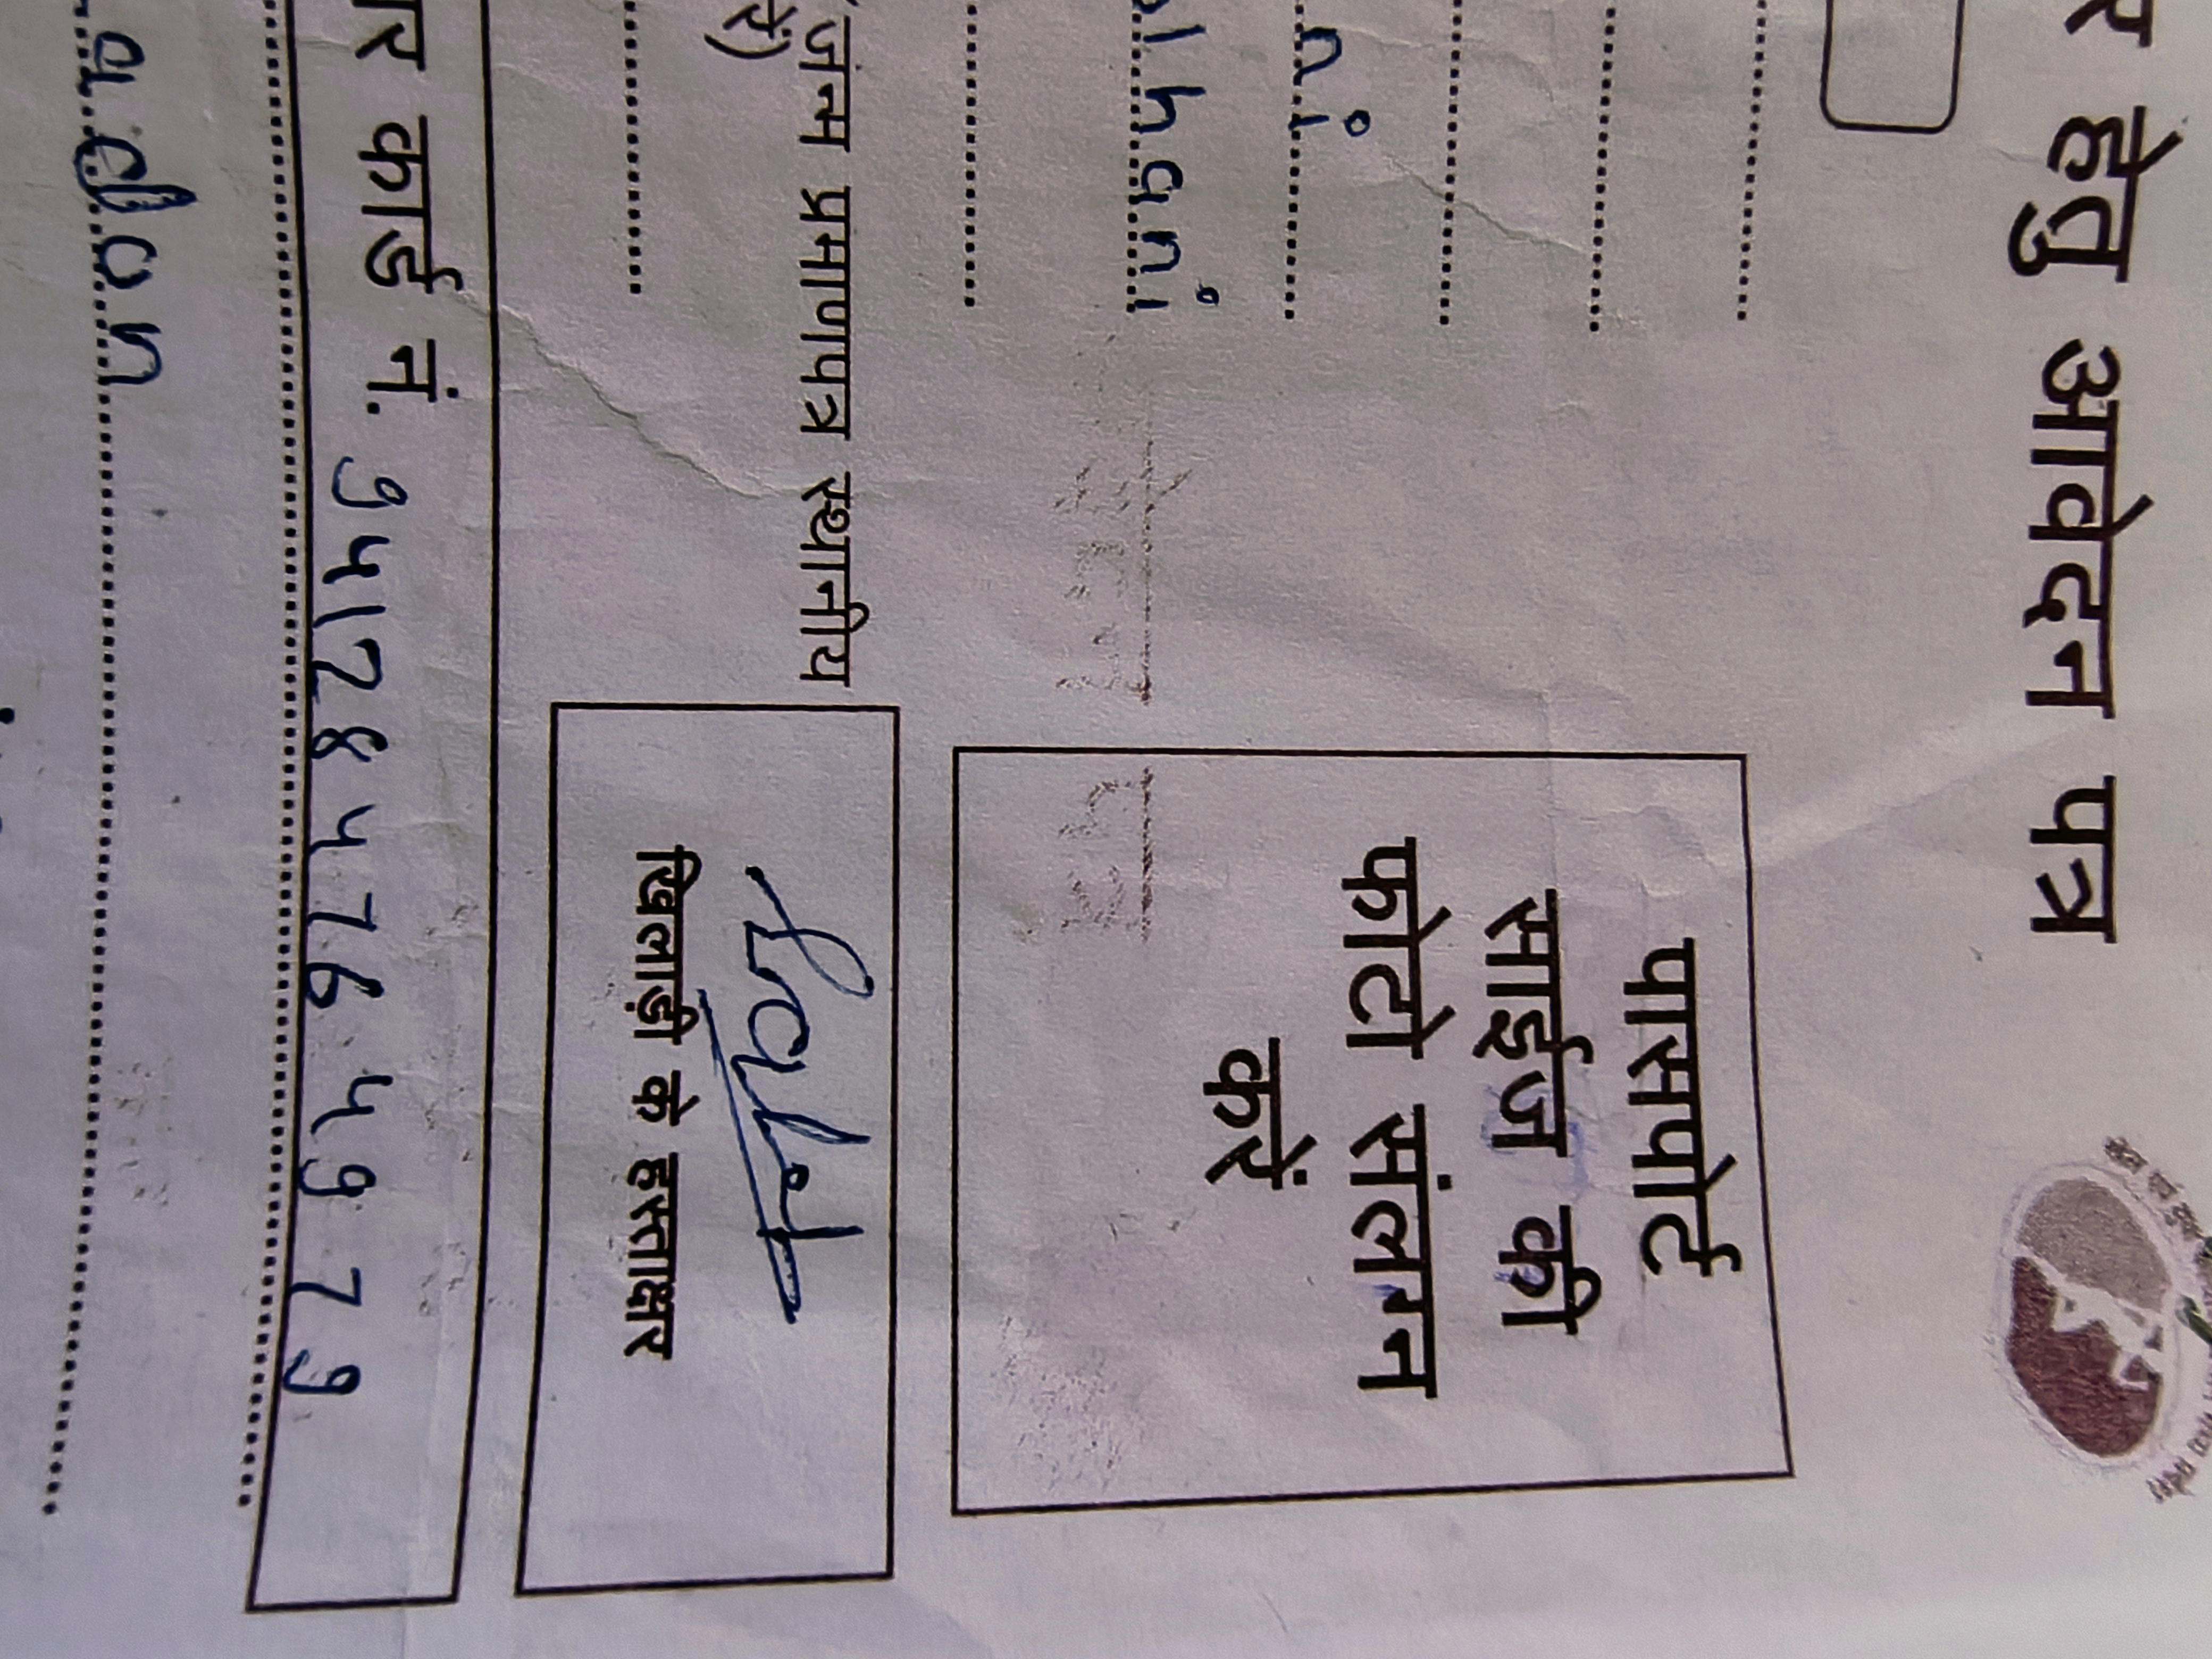 र हेतु आवेदन पत्र
पासपोर्ट
साईज की
ni
फोटो संलग्न
lhani
करें
(जन्म प्रमाणपत्र स्थानीय
रें)
खिलाड़ी के हस्ताक्षर
र कार्ड नं. 941284764979